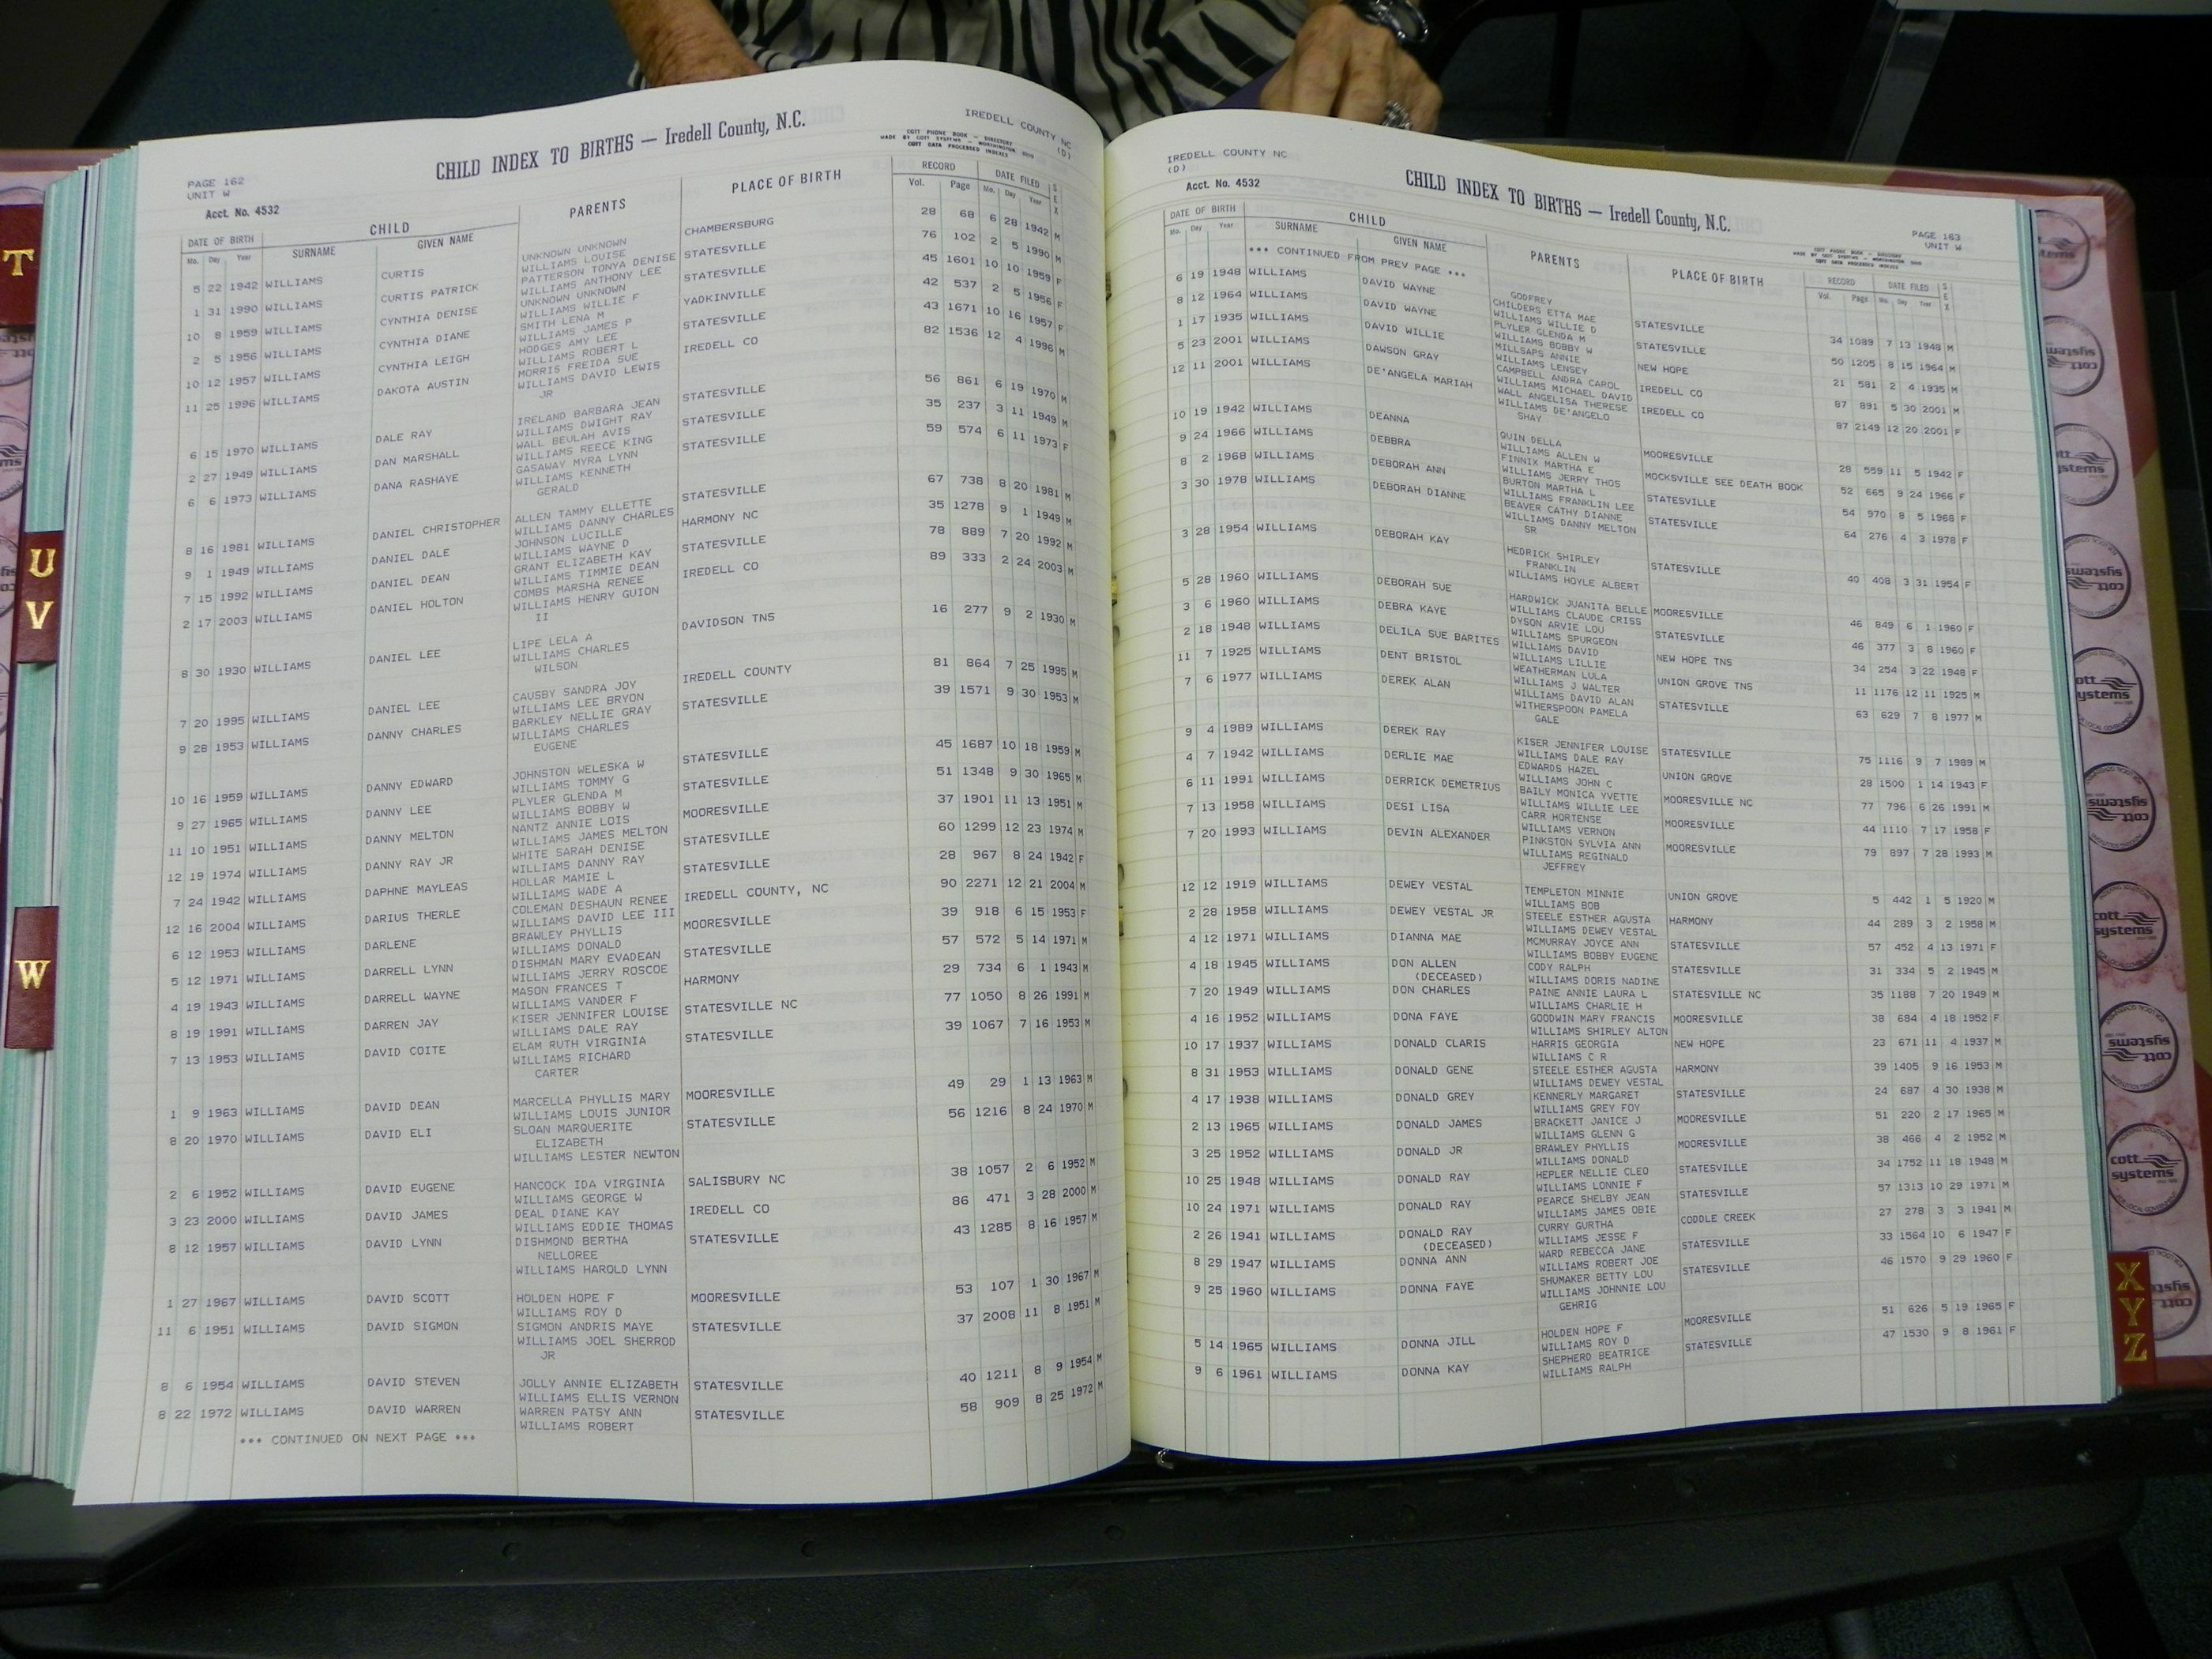 IREDELL COUNTY NC
(D)
CHILD INDEX TO BIRTHS — Iredell County, N.C.
COTT PHONE BOOK — DIRECTORY
MADE BY COTT SYSTEMS — WORTHINGTON OHIO
COTT DATA PROCESSED INDEXES
PAGE 162
UNIT W
Acct. No. 4532
DATE OF BIRTH CHILD PARENTS PLACE OF BIRTH RECORD DATE FILED SEX
Mo. Day Year SURNAME GIVEN NAME Vol. Page Mo. Day Year
5 22 1942 WILLIAMS CURTIS UNKNOWN UNKNOWN CHAMBERSBURG 28 68 6 28 1942 M
WILLIAMS LOUISE
1 31 1990 WILLIAMS CURTIS PATRICK PATTERSON TONYA DENISE STATESVILLE 76 102 2 5 1990 M
WILLIAMS ANTHONY LEE
10 8 1959 WILLIAMS CYNTHIA DENISE UNKNOWN UNKNOWN STATESVILLE 45 1601 10 10 1959 F
WILLIAMS WILLIE F
2 5 1956 WILLIAMS CYNTHIA DIANE SMITH LENA M YADKINVILLE 42 537 2 5 1956 F
WILLIAMS JAMES P
10 12 1957 WILLIAMS CYNTHIA LEIGH HODGES AMY LEE STATESVILLE 43 1671 10 16 1957 F
WILLIAMS ROBERT L
11 25 1996 WILLIAMS DAKOTA AUSTIN MORRIS FREIDA SUE IREDELL CO 82 1536 12 4 1996 M
WILLIAMS DAVID LEWIS
JR
6 15 1970 WILLIAMS DALE RAY IRELAND BARBARA JEAN STATESVILLE 56 861 6 19 1970 M
WILLIAMS DWIGHT RAY
2 27 1949 WILLIAMS DAN MARSHALL WALL BEULAH AVIS STATESVILLE 35 237 3 11 1949 M
WILLIAMS REECE KING
6 6 1973 WILLIAMS DANA RASHAYE GASAWAY MYRA LYNN STATESVILLE 59 574 6 11 1973 F
WILLIAMS KENNETH
GERALD
8 16 1981 WILLIAMS DANIEL CHRISTOPHER ALLEN TAMMY ELLETTE STATESVILLE 67 738 8 20 1981 M
WILLIAMS DANNY CHARLES
9 1 1949 WILLIAMS DANIEL DALE JOHNSON LUCILLE HARMONY NC 35 1278 9 1 1949 M
WILLIAMS WAYNE D
7 15 1992 WILLIAMS DANIEL DEAN GRANT ELIZABETH KAY STATESVILLE 78 889 7 20 1992 M
WILLIAMS TIMMIE DEAN
2 17 2003 WILLIAMS DANIEL HOLTON COMBS MARSHA RENEE IREDELL CO 89 333 2 24 2003 M
WILLIAMS HENRY GUION
II
8 30 1930 WILLIAMS DANIEL LEE LIPE LELA A DAVIDSON TNS 16 277 9 2 1930 M
WILLIAMS CHARLES
WILSON
7 20 1995 WILLIAMS DANIEL LEE CAUSBY SANDRA JOY IREDELL COUNTY 81 864 7 25 1995 M
WILLIAMS LEE BRYON
9 28 1953 WILLIAMS DANNY CHARLES BARKLEY NELLIE GRAY STATESVILLE 39 1571 9 30 1953 M
WILLIAMS CHARLES
EUGENE
10 16 1959 WILLIAMS DANNY EDWARD JOHNSTON WELESKA W STATESVILLE 45 1687 10 18 1959 M
WILLIAMS TOMMY G
9 27 1965 WILLIAMS DANNY LEE PLYLER GLENDA M STATESVILLE 51 1348 9 30 1965 M
WILLIAMS BOBBY W
11 10 1951 WILLIAMS DANNY MELTON NANTZ ANNIE LOIS MOORESVILLE 37 1901 11 13 1951 M
WILLIAMS JAMES MELTON
12 19 1974 WILLIAMS DANNY RAY JR WHITE SARAH DENISE STATESVILLE 60 1299 12 23 1974 M
WILLIAMS DANNY RAY
7 24 1942 WILLIAMS DAPHNE MAYLEAS HOLLAR MAMIE L STATESVILLE 28 967 8 24 1942 F
WILLIAMS WADE A
12 16 2004 WILLIAMS DARIUS THERLE COLEMAN DESHAUN RENEE IREDELL COUNTY, NC 90 2271 12 21 2004 M
WILLIAMS DAVID LEE III
6 12 1953 WILLIAMS DARLENE BRAWLEY PHYLLIS MOORESVILLE 39 918 6 15 1953 F
WILLIAMS DONALD
5 12 1971 WILLIAMS DARRELL LYNN DISHMAN MARY EVADEAN STATESVILLE 57 572 5 14 1971 M
WILLIAMS JERRY ROSCOE
4 19 1943 WILLIAMS DARRELL WAYNE MASON FRANCES T HARMONY 29 734 6 1 1943 M
WILLIAMS VANDER F
8 19 1991 WILLIAMS DARREN JAY KISER JENNIFER LOUISE STATESVILLE NC 77 1050 8 26 1991 M
WILLIAMS DALE RAY
7 13 1953 WILLIAMS DAVID COITE ELAM RUTH VIRGINIA STATESVILLE 39 1067 7 16 1953 M
WILLIAMS RICHARD
CARTER
1 9 1963 WILLIAMS DAVID DEAN MARCELLA PHYLLIS MARY MOORESVILLE 49 29 1 13 1963 M
WILLIAMS LOUIS JUNIOR
8 20 1970 WILLIAMS DAVID ELI SLOAN MARQUERITE STATESVILLE 56 1216 8 24 1970 M
ELIZABETH
WILLIAMS LESTER NEWTON
2 6 1952 WILLIAMS DAVID EUGENE HANCOCK IDA VIRGINIA SALISBURY NC 38 1057 2 6 1952 M
WILLIAMS GEORGE W
3 23 2000 WILLIAMS DAVID JAMES DEAL DIANE KAY IREDELL CO 86 471 3 28 2000 M
WILLIAMS EDDIE THOMAS
8 12 1957 WILLIAMS DAVID LYNN DISHMOND BERTHA STATESVILLE 43 1285 8 16 1957 M
NELLOREE
WILLIAMS HAROLD LYNN
1 27 1967 WILLIAMS DAVID SCOTT HOLDEN HOPE F MOORESVILLE 53 107 1 30 1967 M
WILLIAMS ROY D
11 6 1951 WILLIAMS DAVID SIGMON SIGMON ANDRIS MAYE STATESVILLE 37 2008 11 8 1951 M
WILLIAMS JOEL SHERROD
JR
8 6 1954 WILLIAMS DAVID STEVEN JOLLY ANNIE ELIZABETH STATESVILLE 40 1211 8 9 1954 M
WILLIAMS ELLIS VERNON
8 22 1972 WILLIAMS DAVID WARREN WARREN PATSY ANN STATESVILLE 58 909 8 25 1972 M
WILLIAMS ROBERT
*** CONTINUED ON NEXT PAGE ***
IREDELL COUNTY NC
(D)
Acct. No. 4532
CHILD INDEX TO BIRTHS — Iredell County, N.C.
PAGE 163
UNIT W
DATE OF BIRTH CHILD PARENTS PLACE OF BIRTH RECORD DATE FILED SEX
Mo. Day Year SURNAME GIVEN NAME Vol. Page Mo. Day Year
*** CONTINUED FROM PREV PAGE ***
GODFREY
6 19 1948 WILLIAMS DAVID WAYNE CHILDERS ETTA MAE STATESVILLE 34 1089 7 13 1948 M
WILLIAMS WILLIE D
8 12 1964 WILLIAMS DAVID WAYNE PLYLER GLENDA M STATESVILLE 50 1205 8 15 1964 M
WILLIAMS BOBBY W
1 17 1935 WILLIAMS DAVID WILLIE MILLSAPS ANNIE NEW HOPE 21 581 2 4 1935 M
WILLIAMS LENSEY
5 23 2001 WILLIAMS DAWSON GRAY CAMPBELL ANDRA CAROL IREDELL CO 87 891 5 30 2001 M
WILLIAMS MICHAEL DAVID
12 11 2001 WILLIAMS DE'ANGELA MARIAH WALL ANGELISA THERESE IREDELL CO 87 2149 12 20 2001 F
WILLIAMS DE'ANGELO
SHAY
10 19 1942 WILLIAMS DEANNA QUIN DELLA MOORESVILLE 28 559 11 5 1942 F
WILLIAMS ALLEN W
9 24 1966 WILLIAMS DEBBRA FINNIX MARTHA E MOCKSVILLE SEE DEATH BOOK 52 665 9 24 1966 F
WILLIAMS JERRY THOS
8 2 1968 WILLIAMS DEBORAH ANN BURTON MARTHA L STATESVILLE 54 970 8 5 1968 F
WILLIAMS FRANKLIN LEE
3 30 1978 WILLIAMS DEBORAH DIANNE BEAVER CATHY DIANNE STATESVILLE 64 276 4 3 1978 F
WILLIAMS DANNY MELTON
SR
3 28 1954 WILLIAMS DEBORAH KAY HEDRICK SHIRLEY STATESVILLE 40 408 3 31 1954 F
FRANKLIN
WILLIAMS HOYLE ALBERT
5 28 1960 WILLIAMS DEBORAH SUE HARDWICK JUANITA BELLE MOORESVILLE 46 849 6 1 1960 F
WILLIAMS CLAUDE CRISS
3 6 1960 WILLIAMS DEBRA KAYE DYSON ARVIE LOU STATESVILLE 46 377 3 8 1960 F
WILLIAMS SPURGEON
2 18 1948 WILLIAMS DELILA SUE BARITES WILLIAMS DAVID NEW HOPE TNS 34 254 3 22 1948 F
WILLIAMS LILLIE
11 7 1925 WILLIAMS DENT BRISTOL WEATHERMAN LULA UNION GROVE TNS 11 1176 12 11 1925 M
WILLIAMS J WALTER
7 6 1977 WILLIAMS DEREK ALAN WILLIAMS DAVID ALAN STATESVILLE 63 629 7 8 1977 M
WITHERSPOON PAMELA
GALE
9 4 1989 WILLIAMS DEREK RAY KISER JENNIFER LOUISE STATESVILLE 75 1116 9 7 1989 M
WILLIAMS DALE RAY
4 7 1942 WILLIAMS DERLIE MAE EDWARDS HAZEL UNION GROVE 28 1500 1 14 1943 F
WILLIAMS JOHN C
6 11 1991 WILLIAMS DERRICK DEMETRIUS BAILY MONICA YVETTE MOORESVILLE NC 77 796 6 26 1991 M
WILLIAMS WILLIE LEE
7 13 1958 WILLIAMS DESI LISA CARR HORTENSE MOORESVILLE 44 1110 7 17 1958 F
WILLIAMS VERNON
7 20 1993 WILLIAMS DEVIN ALEXANDER PINKSTON SYLVIA ANN MOORESVILLE 79 897 7 28 1993 M
WILLIAMS REGINALD
JEFFREY
12 12 1919 WILLIAMS DEWEY VESTAL TEMPLETON MINNIE UNION GROVE 5 442 1 5 1920 M
WILLIAMS BOB
2 28 1958 WILLIAMS DEWEY VESTAL JR STEELE ESTHER AGUSTA HARMONY 44 289 3 2 1958 M
WILLIAMS DEWEY VESTAL
4 12 1971 WILLIAMS DIANNA MAE MCMURRAY JOYCE ANN STATESVILLE 57 452 4 13 1971 F
WILLIAMS BOBBY EUGENE
4 18 1945 WILLIAMS DON ALLEN CODY RALPH STATESVILLE 31 334 5 2 1945 M
(DECEASED) WILLIAMS DORIS NADINE
7 20 1949 WILLIAMS DON CHARLES PAINE ANNIE LAURA L STATESVILLE NC 35 1188 7 20 1949 M
WILLIAMS CHARLIE H
4 16 1952 WILLIAMS DONA FAYE GOODWIN MARY FRANCIS MOORESVILLE 38 684 4 18 1952 F
WILLIAMS SHIRLEY ALTON
10 17 1937 WILLIAMS DONALD CLARIS HARRIS GEORGIA NEW HOPE 23 671 11 4 1937 M
WILLIAMS C R
8 31 1953 WILLIAMS DONALD GENE STEELE ESTHER AGUSTA HARMONY 39 1405 9 16 1953 M
WILLIAMS DEWEY VESTAL
4 17 1938 WILLIAMS DONALD GREY KENNERLY MARGARET STATESVILLE 24 687 4 30 1938 M
WILLIAMS GREY FOY
2 13 1965 WILLIAMS DONALD JAMES BRACKETT JANICE J MOORESVILLE 51 220 2 17 1965 M
WILLIAMS GLENN G
3 25 1952 WILLIAMS DONALD JR BRAWLEY PHYLLIS MOORESVILLE 38 466 4 2 1952 M
WILLIAMS DONALD
10 25 1948 WILLIAMS DONALD RAY HEPLER NELLIE CLEO STATESVILLE 34 1752 11 18 1948 M
WILLIAMS LONNIE F
10 24 1971 WILLIAMS DONALD RAY PEARCE SHELBY JEAN STATESVILLE 57 1313 10 29 1971 M
WILLIAMS JAMES OBIE
2 26 1941 WILLIAMS DONALD RAY CURRY GURTHA CODDLE CREEK 27 278 3 3 1941 M
(DECEASED) WILLIAMS JESSE F
8 29 1947 WILLIAMS DONNA ANN WARD REBECCA JANE STATESVILLE 33 1564 10 6 1947 F
WILLIAMS ROBERT JOE
9 25 1960 WILLIAMS DONNA FAYE SHUMAKER BETTY LOU STATESVILLE 46 1570 9 29 1960 F
WILLIAMS JOHNNIE LOU
GEHRIG
5 14 1965 WILLIAMS DONNA JILL HOLDEN HOPE F MOORESVILLE 51 626 5 19 1965 F
WILLIAMS ROY D
9 6 1961 WILLIAMS DONNA KAY SHEPHERD BEATRICE STATESVILLE 47 1530 9 8 1961 F
WILLIAMS RALPH
T
U
V
W
X
Y
Z
cott
systems